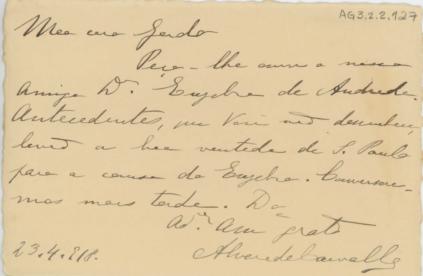 AG3.2.2.127
Meu caro
Peço-lhe a nosso
amigo Dr. Euzebio de Andrade.
Antecedentes, que Você não
a boa vontade de S. Paulo
para a causa do Euzebio. Conversare-
mos mais tarde. Do
Am. grato
Alvaro de Carvalho
23.4.918.